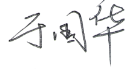 于国华